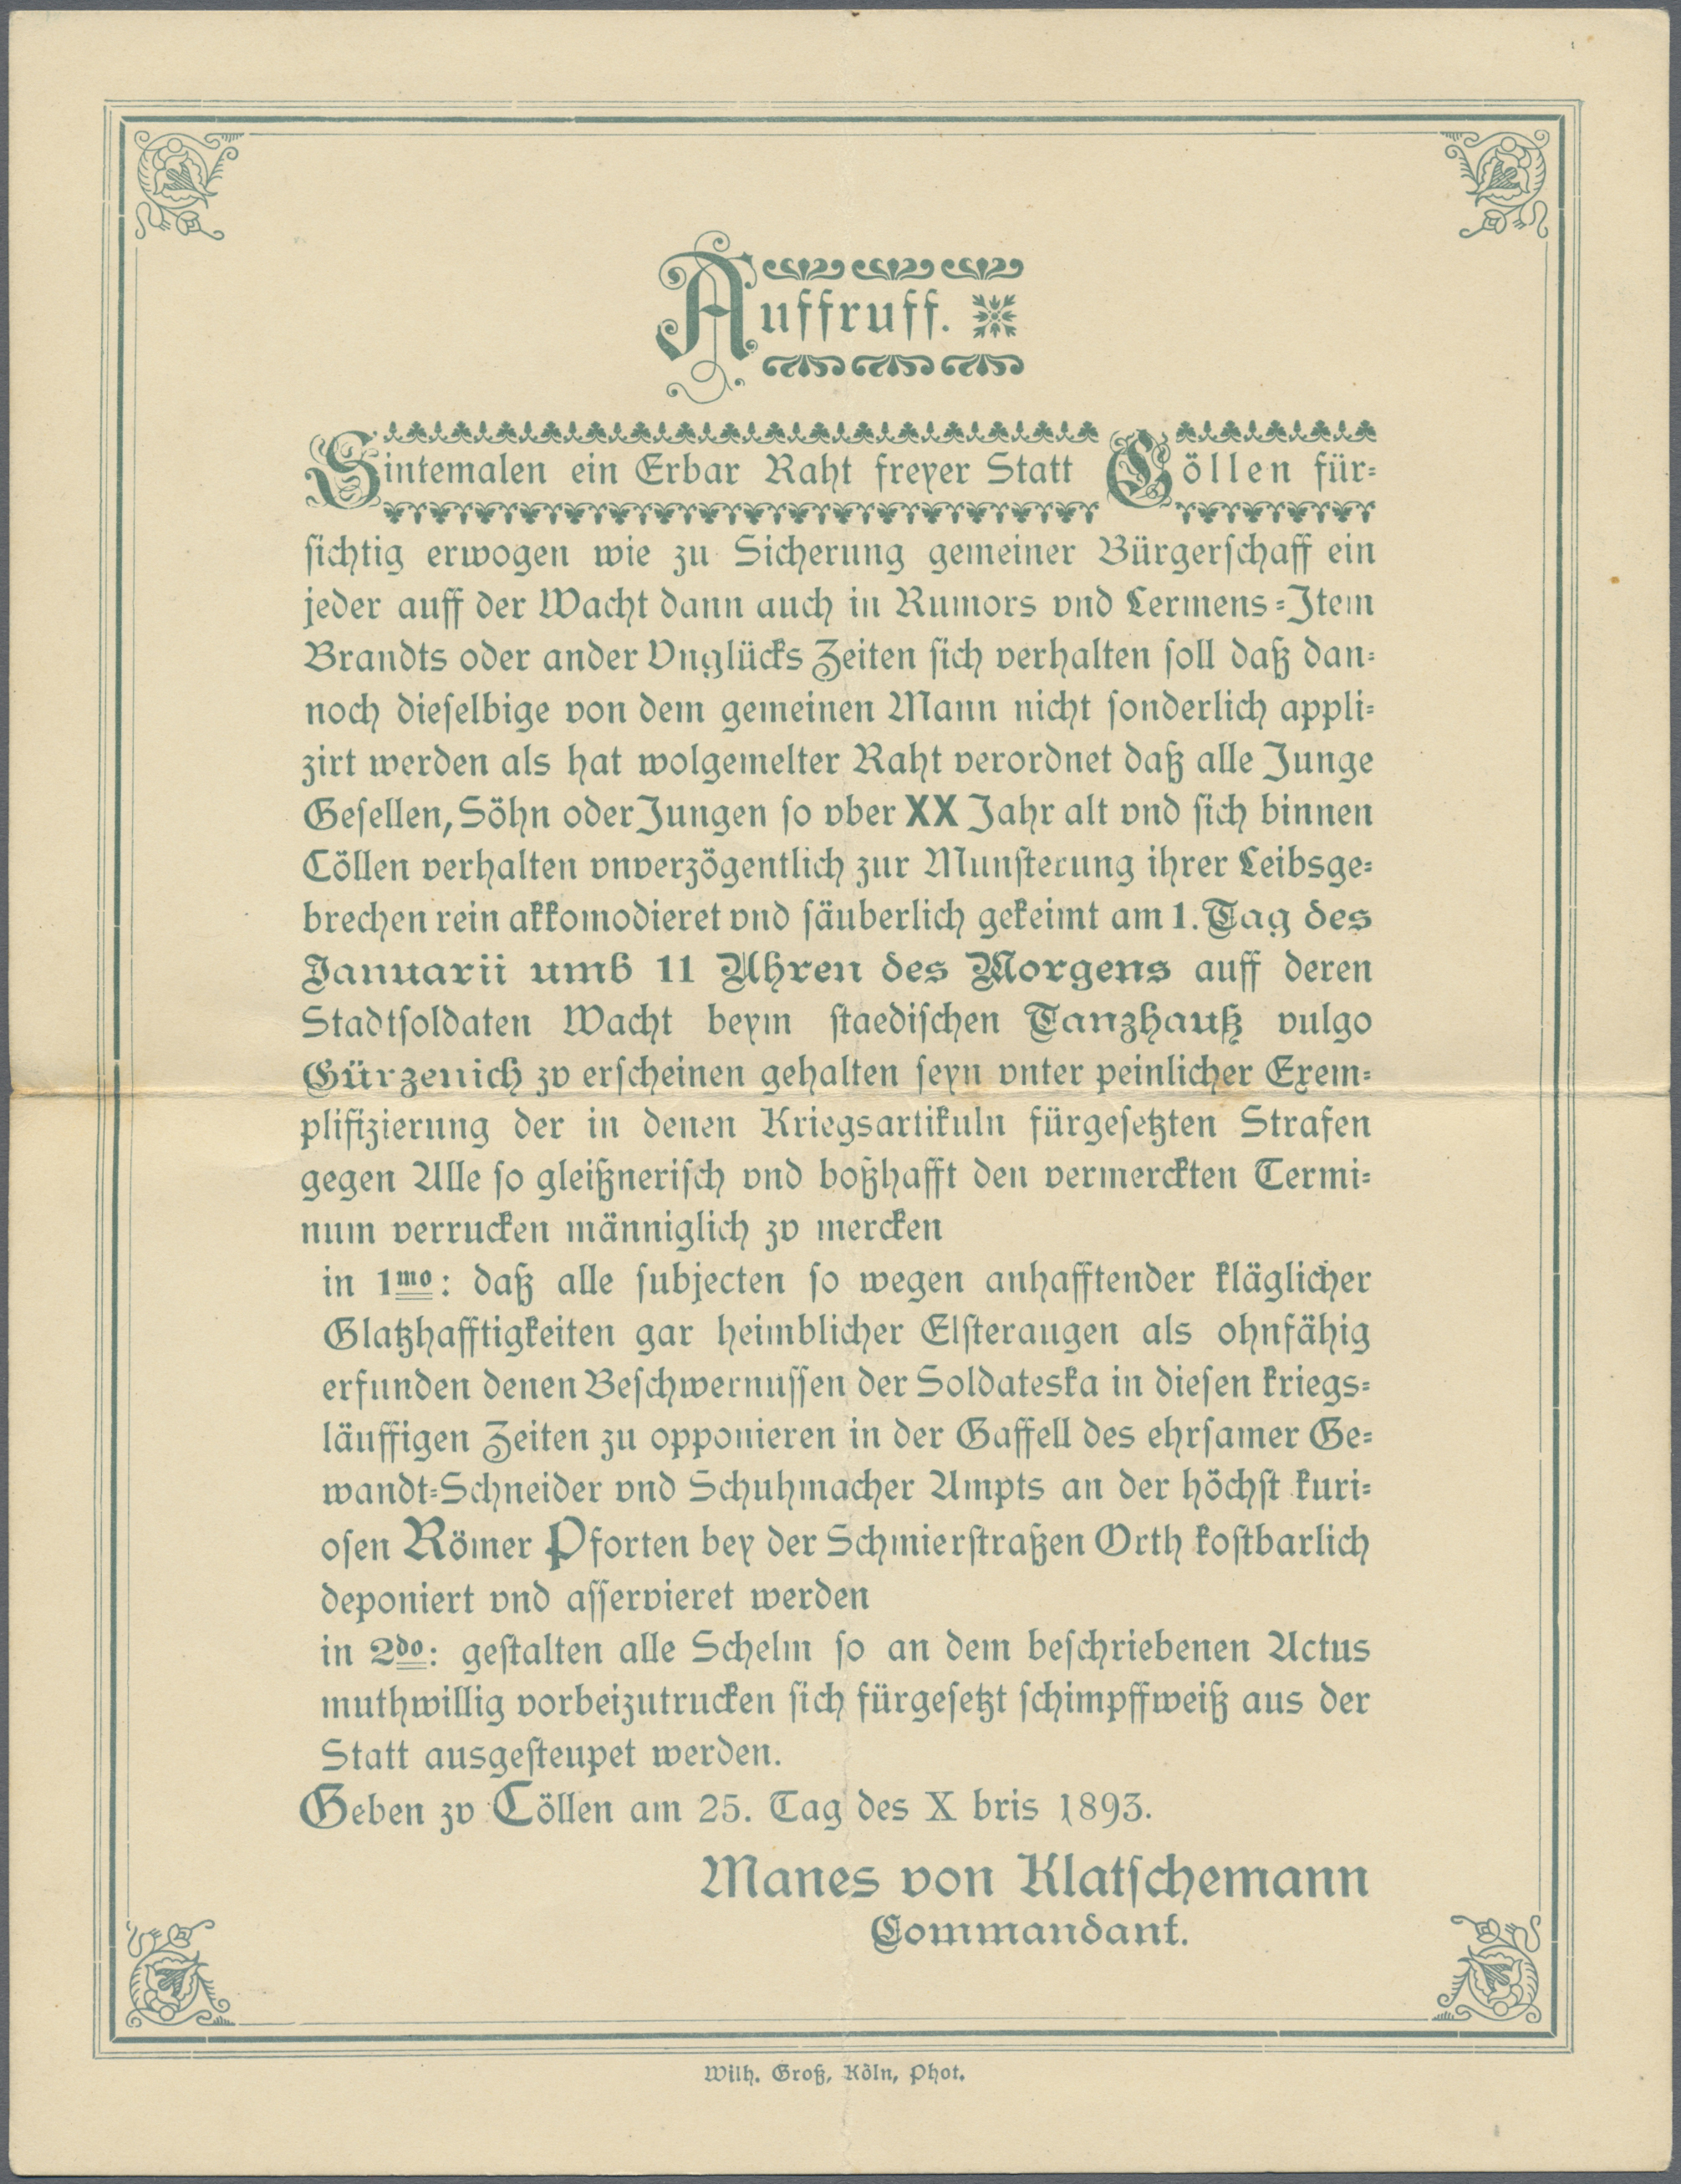 Auffruff.
Sintemalen ein Erbar Raht freyer Statt Cöllen für-
sichtig erwogen wie zu Sicherung gemeiner Bürgerschaff ein
jeder auff der Wacht dann auch in Rumors vnd Lermens-Item
Brandts oder ander Vnglücks Zeiten sich verhalten soll daß dan-
noch dieselbige von dem gemeinen Mann nicht sonderlich appli-
zirt werden als hat wolgemelter Raht verordnet daß alle Junge
Gesellen, Söhn oder Jungen so vber XX Jahr alt vnd sich binnen
Cöllen verhalten vnverzögentlich zur Munsterung ihrer Leibsge-
brechen rein akkomodieret vnd säuberlich gekeimt am 1. Tag des
Januarii umb 11 Uhren des Morgens auff deren
Stadtsoldaten Wacht beym staedischen Tanzhauß vulgo
Gürzenich zv erscheinen gehalten seyn vnter peinlicher Exem-
plifizierung der in denen Kriegsartikuln fürgesetzten Strafen
gegen Alle so gleißnerisch vnd boßhafft den vermerckten Termi-
num verrucken männiglich zv mercken
in 1mo: daß alle subjecten so wegen anhafftender kläglicher
Glatzhafftigkeiten gar heimblicher Elsteraugen als ohnfähig
erfunden denen Beschwernussen der Soldateska in diesen kriegs-
läuffigen Zeiten zu opponieren in der Gaffell des ehrsamer Ge-
wandt-Schneider vnd Schuhmacher Ampts an der höchst kuri-
osen Römer Pforten bey der Schmierstraßen Orth kostbarlich
deponiert vnd asservieret werden
in 2do: gestalten alle Schelm so an dem beschriebenen Actus
muthwillig vorbeizutrucken sich fürgesetzt schimpffweiß aus der
Statt ausgesteupet werden.
Geben zv Cöllen am 25. Tag des X bris 1893.
Manes von Klatschemann
Commandant.
Wilh. Groß, Köln, Phot.